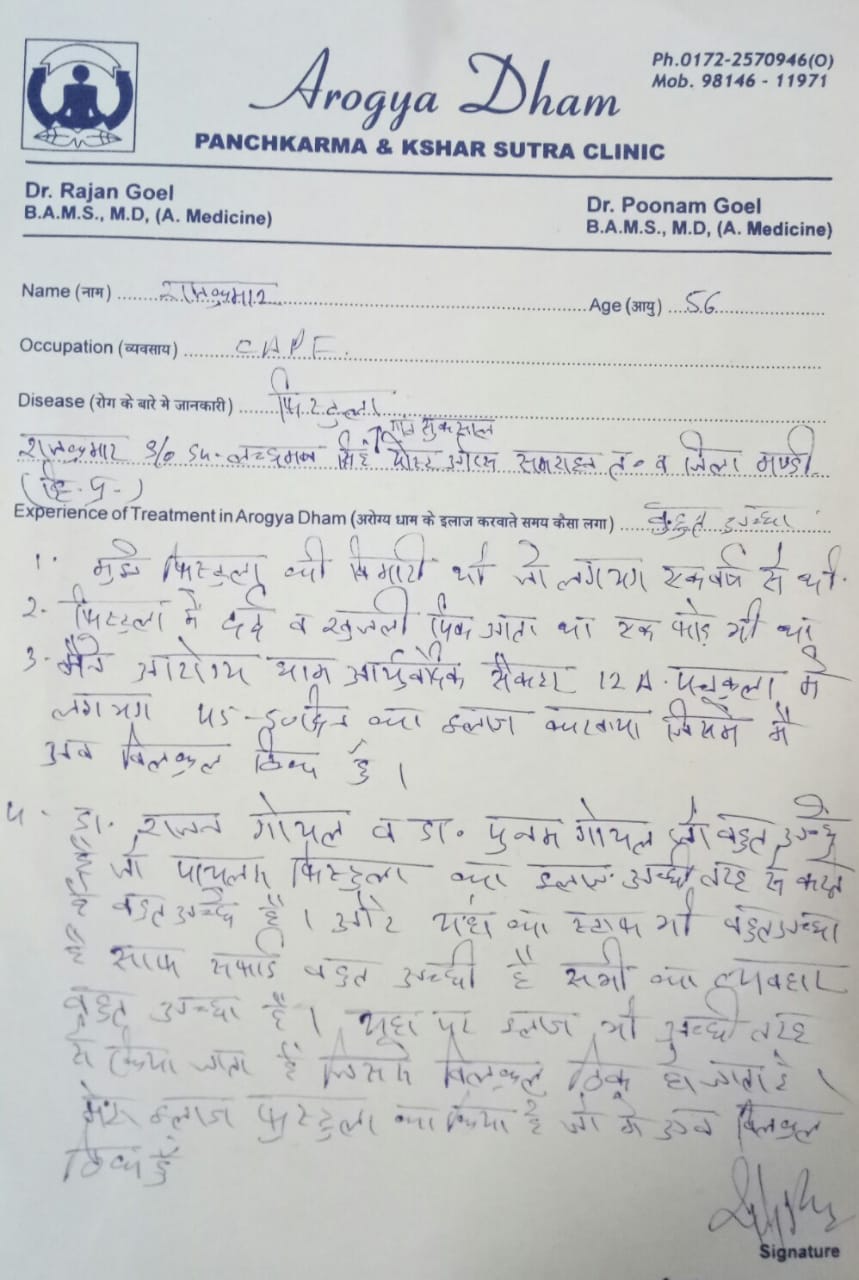 Arogya Dham
Ph.0172-2570946(O)
Mob. 98146 - 11971
PANCHKARMA & KSHAR SUTRA CLINIC
Dr. Rajan Goel
B.A.M.S., M.D, (A. Medicine)
Dr. Poonam Goel
B.A.M.S., M.D, (A. Medicine)
Name (नाम) राजकुमार Age (आयु) 56
Occupation (व्यवसाय) CAPF.
Disease (रोग के बारे मे जानकारी) फिस्टुला
गांव
राजकुमार S/o Sh. लच्छमन सिंह पोस्ट त० व जिला मण्डी
(हि.प्र.)
Experience of Treatment in Arogya Dham (अरोग्य धाम के इलाज करवाते समय कैसा लगा) बहुत अच्छा
1. मुझे फिस्टुला की बिमारी थी जो लगभग एक वर्ष से थी.
2. फिस्टुला में दर्द व खुजली आता था एक फोड़ा भी था
3. मैंने आरोग्य धाम आर्युवेदिक सैक्टर 12A पंचकुला में
लगभग का इलाज करवाया जिसमें मैं
अब बिलकुल ठिक हूँ ।
4. डा. राजन गोयल व डा. पुनम गोयल जी बहुत अच्छे
है जो फिस्टुला का इलाज अच्छी तरह से करते
है बहुत अच्छे है । और यहां का स्टाफ भी बहुत अच्छा
है साफ सफाई बहुत अच्छी है सभी का व्यवहार
बहुत अच्छा है । यहा पर इलाज भी अच्छी तरह
से किया जाता है जिसमें बिलकुल ठिक हो जाता है ।
मेरा इलाज फिस्टुला का किया है जो मै अब बिलकुल
ठिक हूँ
Signature